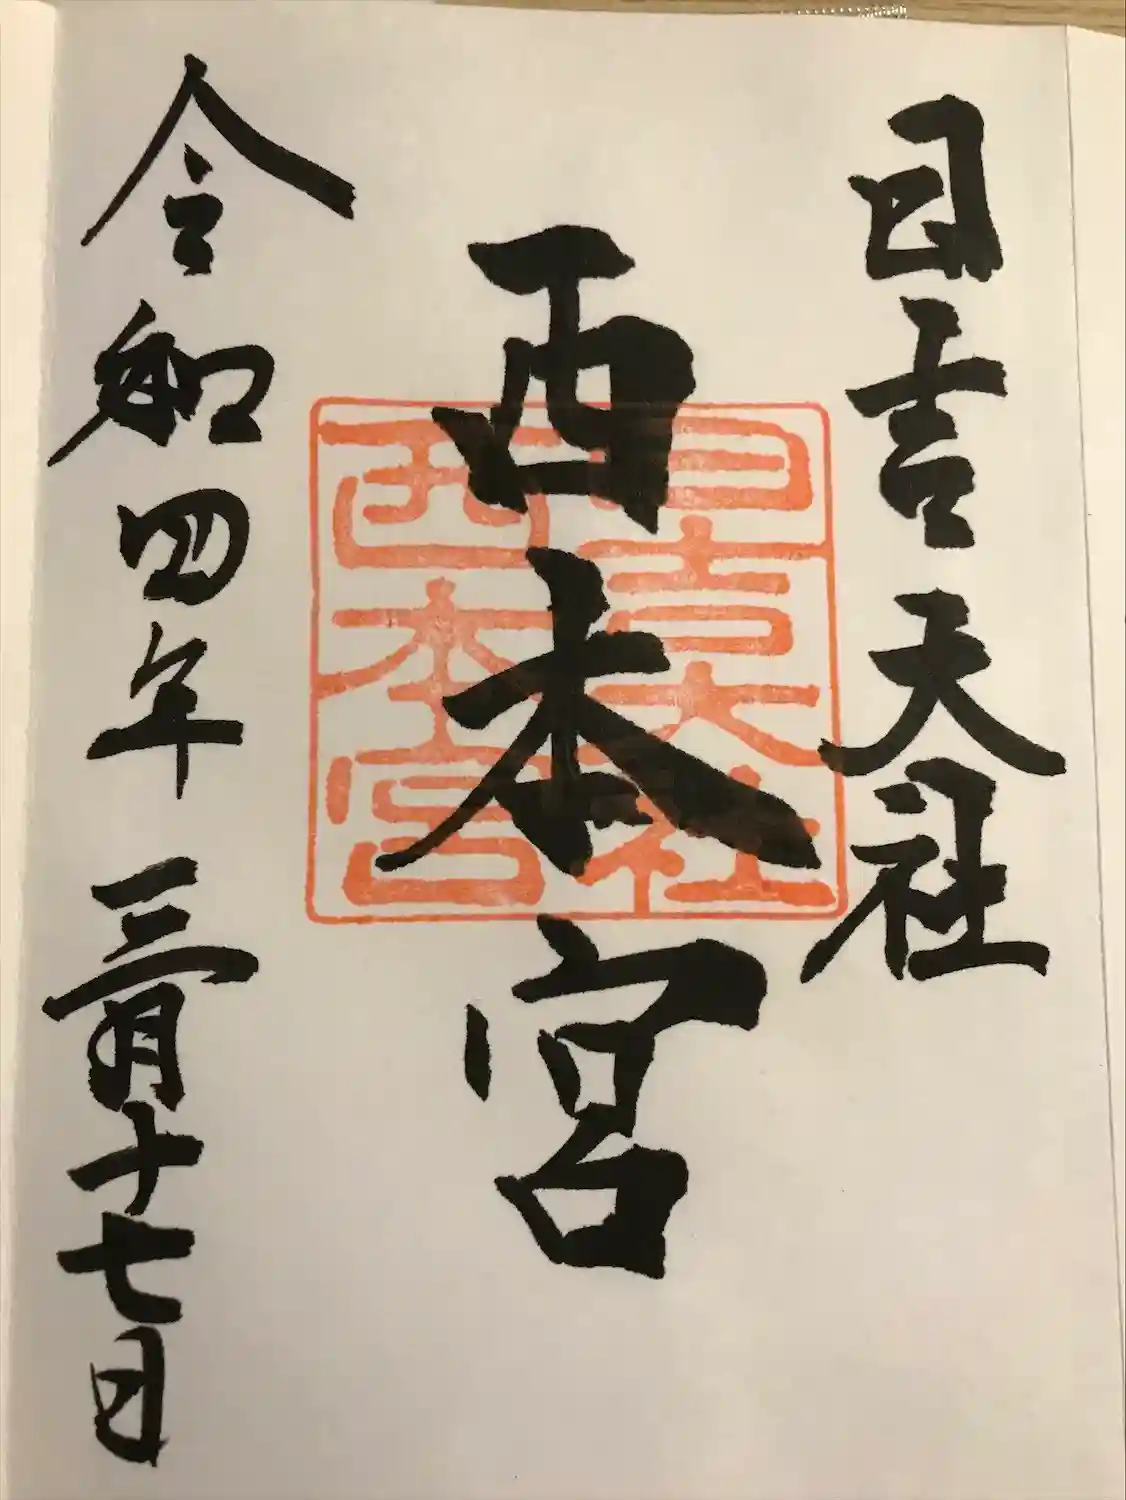 日吉大社
西本宮
令和四年三月十七日
日吉大社
西本宮